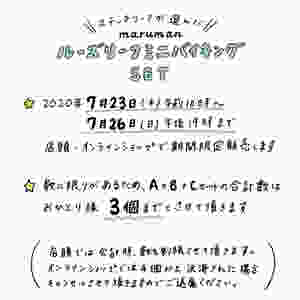 ステンクリーフが選んだ
maruman
ルーズリーフミニバイキング
SET
2020年 7月23日(木)午前10時〜
7月26日(日)午後19時まで
店頭・オンラインショップで期間限定販売します
数に限りがあるため、A・B・Cセットの合計数は
おひとり様 3個までとさせて頂きます
店頭では会計時、数を制限させて頂きます。
オンラインショップでは4個以上決済された場合
キャンセルさせて頂きますのでご注意ください。